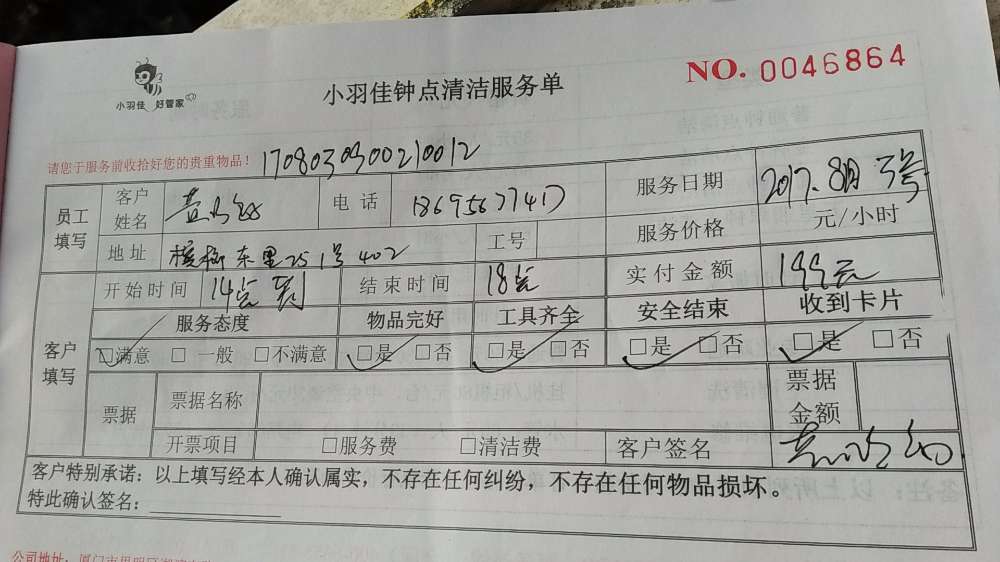 小羽佳 好管家
小羽佳钟点清洁服务单
NO. 0046864
请您于服务前收拾好您的贵重物品!
1708030900210012
员工填写 客户姓名 电话 18695677417 服务日期 2017.8月3号
地址 槟榔东里251号402 工号 服务价格 元/小时
开始时间 14点 到 结束时间 18点 实付金额 199元
客户填写 服务态度 物品完好 工具齐全 安全结束 收到卡片
□满意 □一般 □不满意 □是 □否 □是 □否 □是 □否 □是 □否
票据 票据名称 票据金额
开票项目 □服务费 □清洁费 客户签名
客户特别承诺:以上填写经本人确认属实,不存在任何纠纷,不存在任何物品损坏。
特此确认签名:
公司地址:厦门市思明区